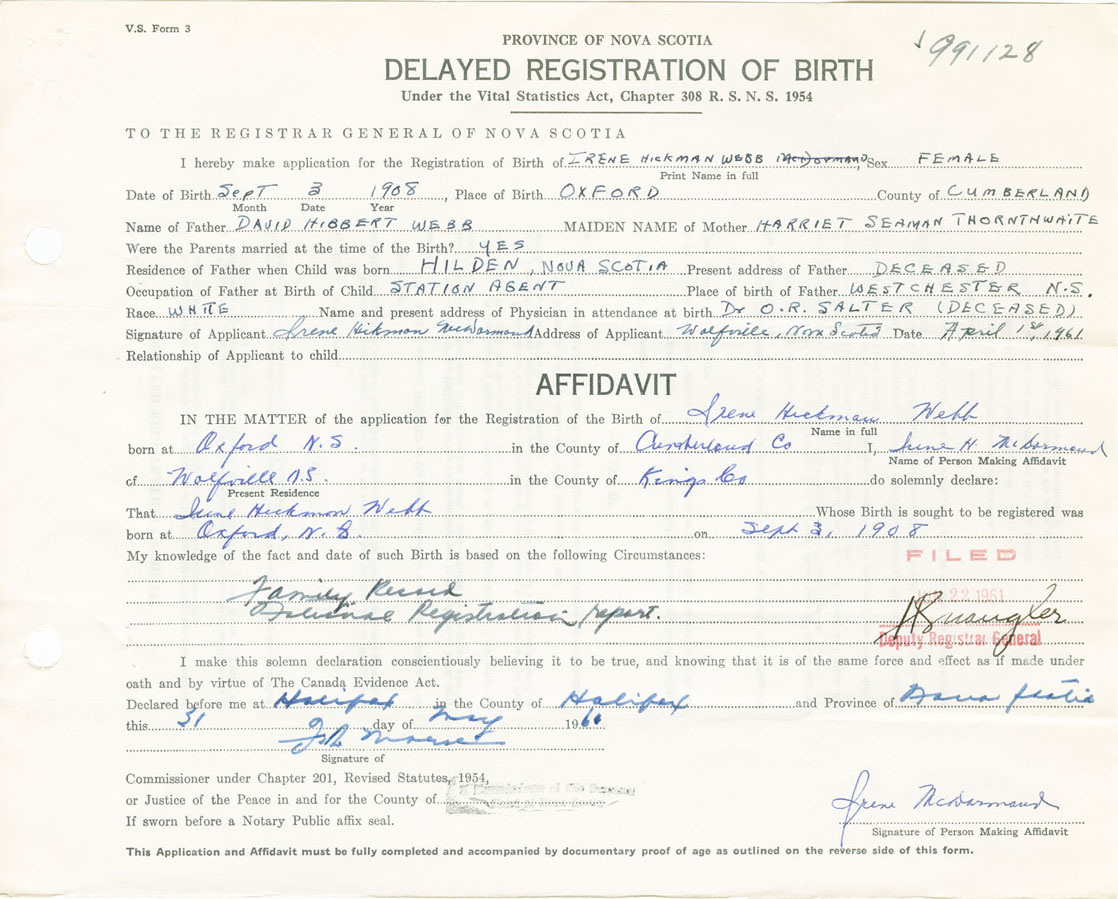 V.S. Form 3
991128
PROVINCE OF NOVA SCOTIA
DELAYED REGISTRATION OF BIRTH
Under the Vital Statistics Act, Chapter 308 R. S. N. S. 1954
TO THE REGISTRAR GENERAL OF NOVA SCOTIA
I hereby make application for the Registration of Birth of IRENE HICKMAN WEBB McDORMAND Sex FEMALE
Print Name in full
Date of Birth SEPT 3 1908, Place of Birth OXFORD County of CUMBERLAND
Month Date Year
Name of Father DAVID HIBBERT WEBB MAIDEN NAME of Mother HARRIET SEAMAN THORNTHWAITE
Were the Parents married at the time of the Birth? YES
Residence of Father when Child was born HILDEN, NOVA SCOTIA Present address of Father DECEASED
Occupation of Father at Birth of Child STATION AGENT Place of birth of Father WESTCHESTER N.S.
Race WHITE Name and present address of Physician in attendance at birth Dr O.R. SALTER (DECEASED)
Signature of Applicant Irene Hickman McDormand Address of Applicant Wolfville, Nova Scotia Date April 1st, 1961
Relationship of Applicant to child
AFFIDAVIT
IN THE MATTER of the application for the Registration of the Birth of Irene Hickman Webb
Name in full
born at Oxford N.S. in the County of Cumberland Co I, Irene H. McDormand
Name of Person Making Affidavit
of Wolfville N.S. in the County of Kings Co do solemnly declare:
Present Residence
That Irene Hickman Webb Whose Birth is sought to be registered was
born at Oxford, N.S. on Sept 3, 1908
My knowledge of the fact and date of such Birth is based on the following Circumstances:
FILED
Family Record
National Registration report.
22 1961
Deputy Registrar General
I make this solemn declaration conscientiously believing it to be true, and knowing that it is of the same force and effect as if made under
oath and by virtue of The Canada Evidence Act.
Declared before me at Halifax in the County of Halifax and Province of Nova Scotia
this 31 day of May 1961
Signature of
Commissioner under Chapter 201, Revised Statutes, 1954,
or Justice of the Peace in and for the County of
If sworn before a Notary Public affix seal.
Irene McDormand
Signature of Person Making Affidavit
This Application and Affidavit must be fully completed and accompanied by documentary proof of age as outlined on the reverse side of this form.